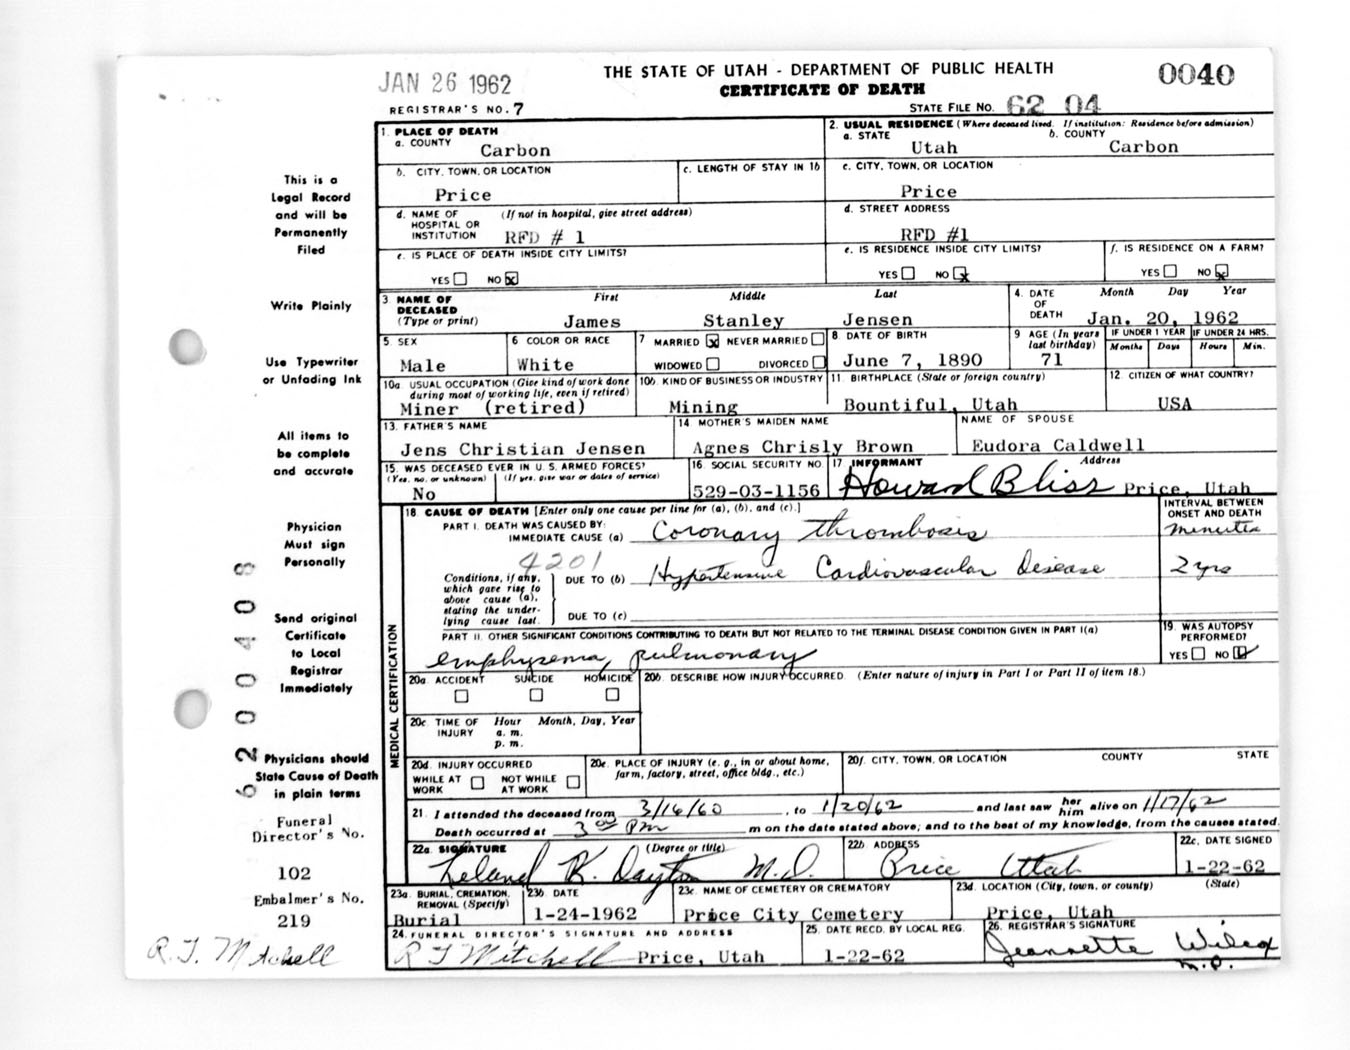 JAN 26 1962
THE STATE OF UTAH - DEPARTMENT OF PUBLIC HEALTH
0040
CERTIFICATE OF DEATH
REGISTRAR'S NO. 7
STATE FILE NO. 62 04
1. PLACE OF DEATH
a. COUNTY Carbon
2. USUAL RESIDENCE (Where deceased lived. If institution: Residence before admission)
a. STATE Utah b. COUNTY Carbon
b. CITY, TOWN, OR LOCATION Price
c. LENGTH OF STAY IN 1b
c. CITY, TOWN, OR LOCATION Price
d. NAME OF HOSPITAL OR INSTITUTION (If not in hospital, give street address) RFD # 1
d. STREET ADDRESS RFD #1
e. IS PLACE OF DEATH INSIDE CITY LIMITS?
YES NO x
e. IS RESIDENCE INSIDE CITY LIMITS?
YES NO x
f. IS RESIDENCE ON A FARM?
YES NO x
3. NAME OF DECEASED (Type or print)
First Middle Last
James Stanley Jensen
4. DATE OF DEATH Month Day Year
Jan. 20, 1962
5 SEX Male
6 COLOR OR RACE White
7 MARRIED x NEVER MARRIED
WIDOWED DIVORCED
8. DATE OF BIRTH June 7, 1890
9 AGE (In years last birthday) 71
IF UNDER 1 YEAR Months Days
IF UNDER 24 HRS. Hours Min.
10a. USUAL OCCUPATION (Give kind of work done during most of working life, even if retired) Miner (retired)
10b. KIND OF BUSINESS OR INDUSTRY Mining
11. BIRTHPLACE (State or foreign country) Bountiful, Utah
12 CITIZEN OF WHAT COUNTRY? USA
13. FATHER'S NAME Jens Christian Jensen
14 MOTHER'S MAIDEN NAME Agnes Chrisly Brown
NAME OF SPOUSE Eudora Caldwell
15. WAS DECEASED EVER IN U. S. ARMED FORCES?
(Yes, no, or unknown) (If yes, give war or dates of service)
No
16. SOCIAL SECURITY NO. 529-03-1156
17 INFORMANT Address
Howard Bliss Price, Utah
18. CAUSE OF DEATH [Enter only one cause per line for (a), (b), and (c).]
INTERVAL BETWEEN ONSET AND DEATH
PART I. DEATH WAS CAUSED BY:
IMMEDIATE CAUSE (a) Coronary thrombosis minutes
4201
Conditions, if any, which gave rise to above cause (a), stating the underlying cause last.
DUE TO (b) Hypertensive Cardiovascular Disease 2 yrs
DUE TO (c)
PART II. OTHER SIGNIFICANT CONDITIONS CONTRIBUTING TO DEATH BUT NOT RELATED TO THE TERMINAL DISEASE CONDITION GIVEN IN PART I(a)
emphysema, pulmonary
19. WAS AUTOPSY PERFORMED?
YES NO
MEDICAL CERTIFICATION
20a. ACCIDENT SUICIDE HOMICIDE
20b. DESCRIBE HOW INJURY OCCURRED. (Enter nature of injury in Part I or Part II of item 18.)
20c. TIME OF INJURY Hour Month, Day, Year
a. m.
p. m.
20d. INJURY OCCURRED
WHILE AT WORK NOT WHILE AT WORK
20e. PLACE OF INJURY (e. g., in or about home, farm, factory, street, office bldg., etc.)
20f. CITY, TOWN, OR LOCATION COUNTY STATE
21. I attended the deceased from 3/16/60, to 1/20/62 and last saw her him alive on 1/17/62
Death occurred at 3 00 PM m on the date stated above; and to the best of my knowledge, from the causes stated.
22a. SIGNATURE (Degree or title)
Leland K. Dayton M.D.
22b ADDRESS Price Utah
22c. DATE SIGNED 1-22-62
23a. BURIAL, CREMATION, REMOVAL (Specify) Burial
23b. DATE 1-24-1962
23c. NAME OF CEMETERY OR CREMATORY Price City Cemetery
23d. LOCATION (City, town, or county) (State)
Price, Utah
24. FUNERAL DIRECTOR'S SIGNATURE AND ADDRESS
R T Mitchell Price, Utah
25. DATE RECD. BY LOCAL REG. 1-22-62
26. REGISTRAR'S SIGNATURE
Jeannette Wilcox
M.P.
This is a
Legal Record
and will be
Permanently
Filed
Write Plainly
Use Typewriter
or Unfading Ink
All items to
be complete
and accurate
Physician
Must sign
Personally
Send original
Certificate
to Local
Registrar
Immediately
Physicians should
State Cause of Death
in plain terms
Funeral
Director's No.
102
Embalmer's No.
219
R. T. Mitchell
62000408